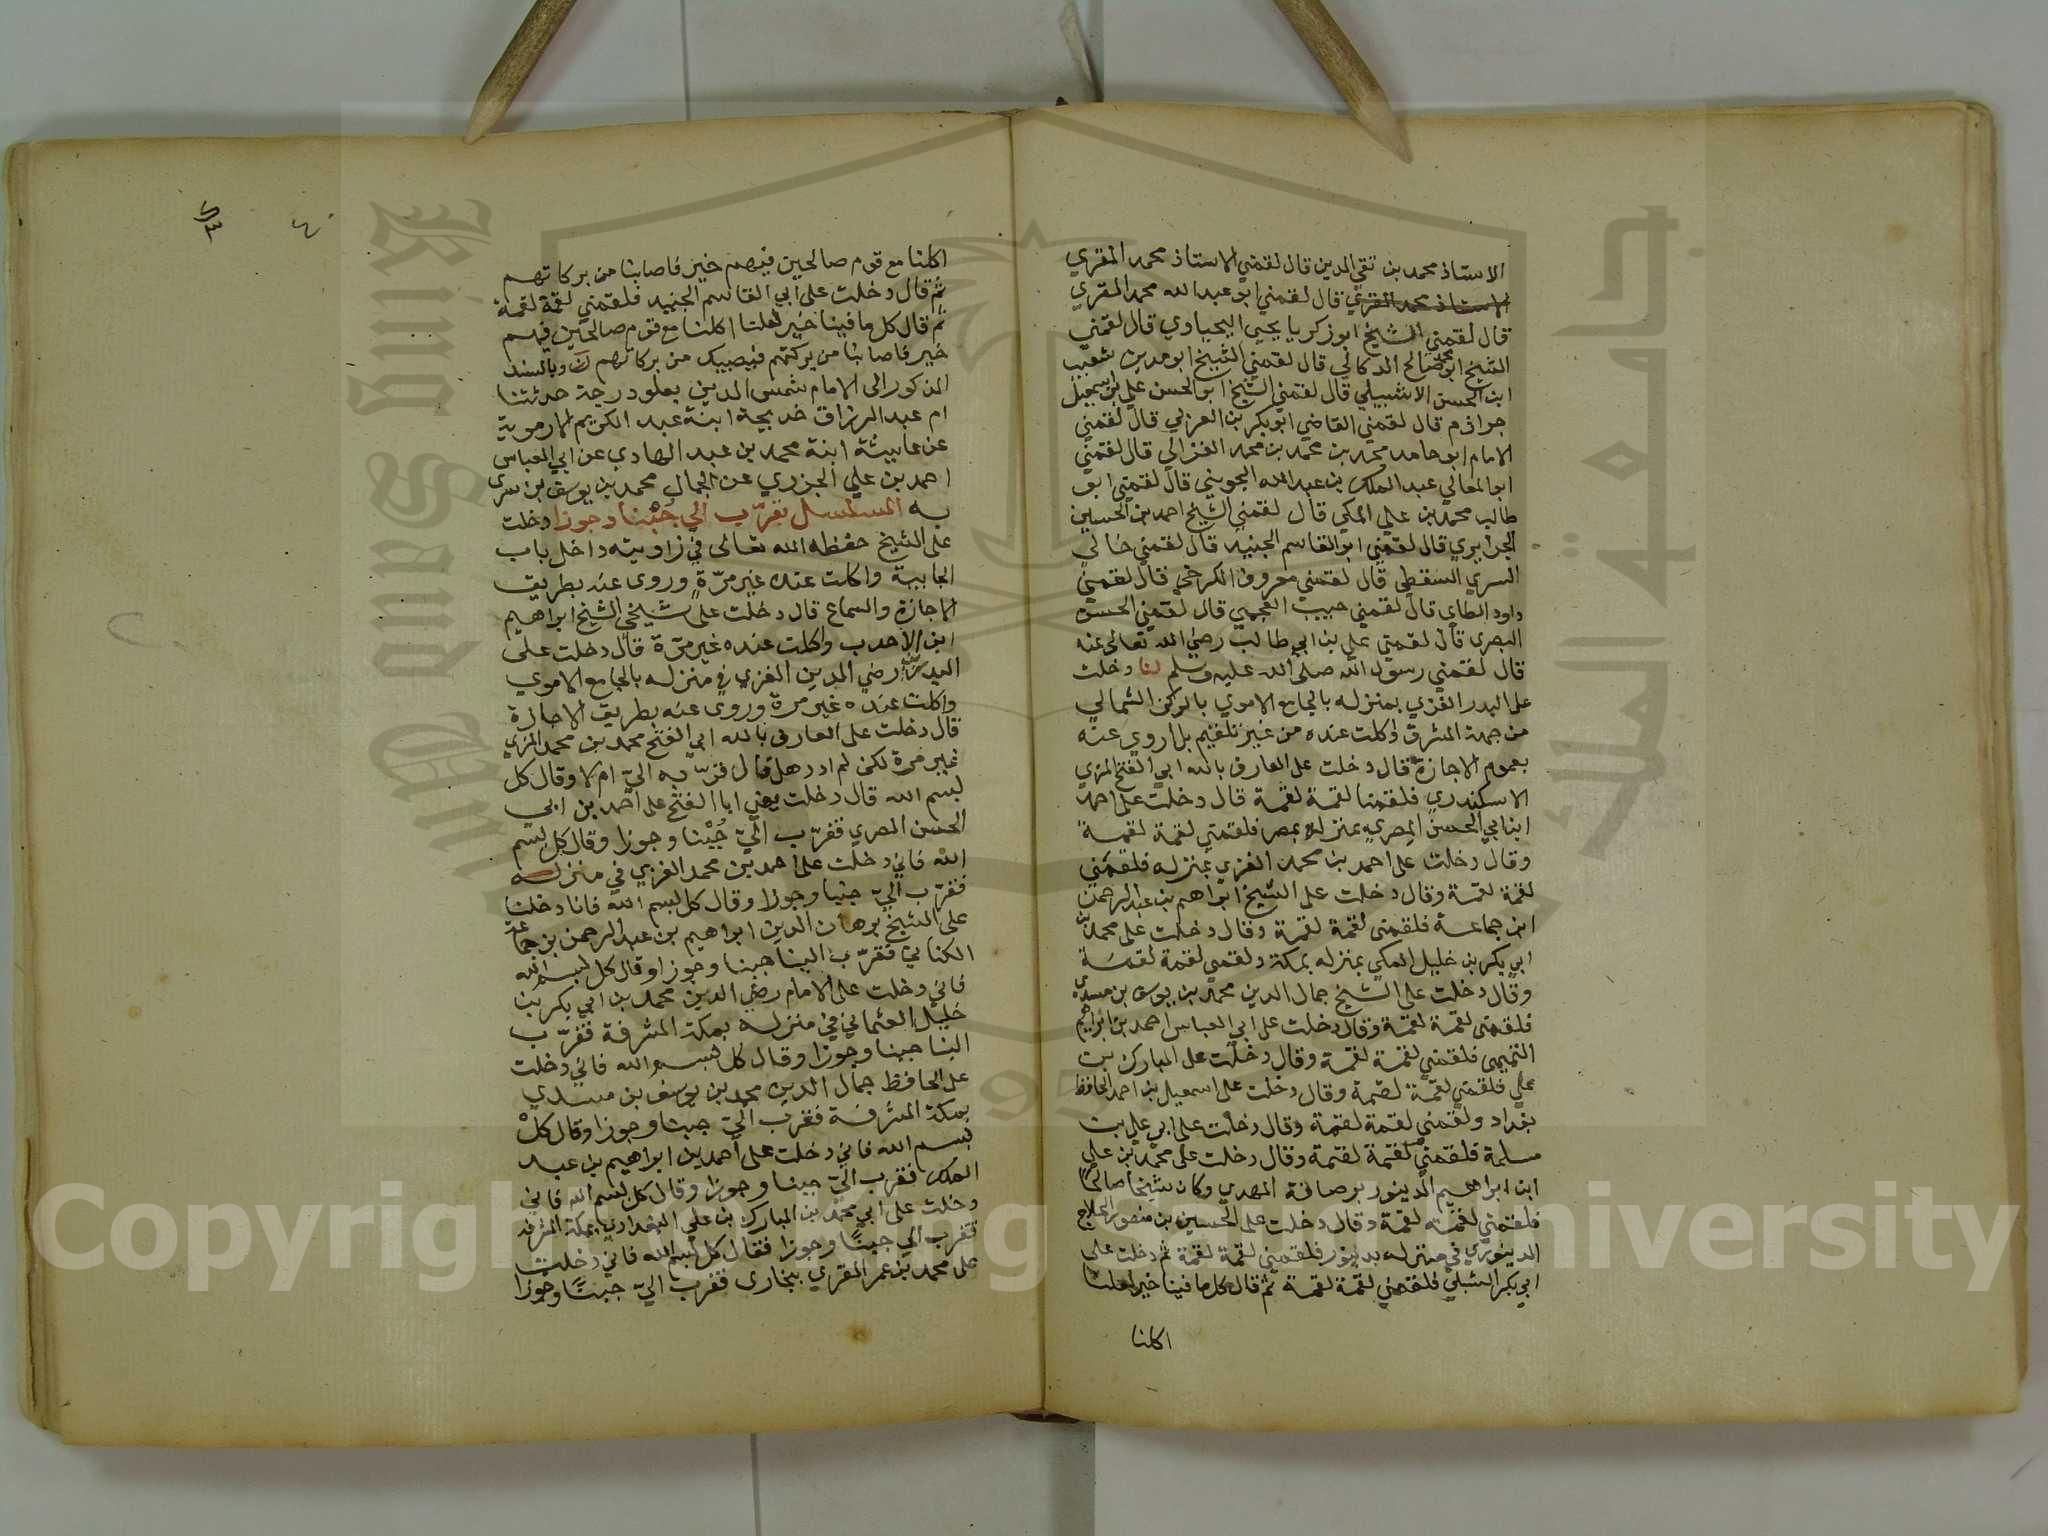 الاستاذ محمد بن تقي الدين قال لقمني الاستاذ محمد المقري
الاستاذ محمد المقري قال لقمني ابو عبد الله محمد المقري
قال لقمني الشيخ ابو زكريا يحيى البجياوي قال لقمني
الشيخ ابو محمد صالح الدكالي قال لقمني الشيخ ابو مدين شعيب
ابن الحسن الاشبيلي قال لقمني الشيخ ابو الحسن علي بن اسمعيل
حرازم قال لقمني القاضي ابو بكر بن العربي قال لقمني
الامام ابو حامد محمد بن محمد بن محمد الغزالي قال لقمني
ابو المعالي عبد الملك بن عبد الله الجويني قال لقمني ابو
طالب محمد بن علي المكي قال لقمني الشيخ احمد بن الحسين
الجرايري قال لقمني ابو القاسم الجنيد قال لقمني خالي
السري السقطي قال لقمني معروف الكرخي قال لقمني
داود الطاي قال لقمني حبيب العجمي قال لقمني الحسن
البصري قال لقمني علي بن ابي طالب رضي الله تعالى عنه
قال لقمني رسول الله صلى الله عليه وسلم لنا دخلت
على البدر الغزي بمنزله بالجامع الاموي بالركن الشمالي
من جهة المشرق واكلت عنده من غير تلقيم بل اروي عنه
بعموم الاجازة قال دخلت على العارف بالله ابي الفتح المزي
الاسكندري فلقمنا لقمة لقمة قال دخلت على احمد
ابن ابي الحسن المصري بمنزله بمصر فلقمني لقمة لقمة
وقال دخلت على احمد بن محمد الغزي بمنزله فلقمني
لقمة لقمة وقال دخلت على الشيخ ابراهيم بن عبد الرحمن
ابن جماعة فلقمني لقمة لقمة وقال دخلت على محمد بن
ابي بكر بن خليل المكي بمنزله بمكة ولقمني لقمة لقمة
وقال دخلت على الشيخ جمال الدين محمد بن يوسف بن مسدي
فلقمني لقمة لقمة وقال دخلت على ابي العباس احمد بن ابراهيم
التميمي فلقمني لقمة لقمة وقال دخلت على المبارك بن
علي فلقمني لقمة لقمة وقال دخلت على اسمعيل بن احمد الحافظ
بغداد ولقمني لقمة لقمة وقال دخلت على ابي علي بن
مسلمة فلقمني لقمة لقمة وقال دخلت على محمد بن علي
ابن ابراهيم الدينور برصافة المهدي وكان شيخا صالحا
فلقمني لقمة لقمة وقال دخلت على الحسين بن منصور الحلاج
الدينوري في منزله بدينور فلقمني لقمة لقمة ثم دخلت على
ابي بكر الشبلي فلقمني لقمة لقمة ثم قال كل ما فينا خير لعلنا
اكلنا
اكلنا مع قوم صالحين فيهم خير فاصابنا من بركاتهم
ثم قال دخلت على ابي القاسم الجنيد فلقمني لقمة لقمة
ثم قال كل ما فينا خير لعلنا اكلنا مع قوم صالحين فيهم
خير فاصابنا من بركتهم فيصيبك من بركاتهم وبالسند
المذكور الى الامام شمس الدين بعلو درجة حدثتنا
ام عبد الرزاق خديجة ابنة عبد الكريم الارموية
عن عايشة ابنة محمد بن عبد الهادي عن ابي العباس
احمد بن علي الجزري عن الجمال محمد بن يوسف بن مسدي
به المسلسل بقرّب الي جبنا وجوزا دخلت
على الشيخ حفظه الله تعالى في زاويته داخل باب
الجابية واكلت عنده غير مرّة وروى عنه بطريق
الاجازة والسماع قال دخلت على شيخي الشيخ ابراهيم
ابن الاحدب واكلت عنده غير مرّة قال دخلت على
البدر بن رضي الدين الغزي في منزله بالجامع الاموي
واكلت عنده غير مرة وروى عنه بطريق الاجازة
قال دخلت على العارف بالله ابي الفتح محمد بن محمد المزي
غير مرة لكن لم ادر هل قال قرّب به اليّ ام لا وقال كل
بسم الله قال دخلت يعني ابا الفتح على احمد بن ابي
الحسن المصري فقرّب اليّ جُبْنا وجوزا وقال كل بسم
الله فاني دخلت على احمد بن محمد الغزي في منزله
فقرّب اليّ جبنا وجوزا وقال كل بسم الله فانا دخلنا
على الشيخ برهان الدين ابراهيم بن عبد الرحمن بن جماعة
الكناني فقرّب الينا جبنا وجوزا وقال كل بسم الله
فاني دخلت على الامام رضي الدين محمد بن ابي بكر بن
خليل العثماني في منزله بمكة المشرفة فقرّب
الينا جبنا وجوزا وقال كل بسم الله فاني دخلت
على الحافظ جمال الدين محمد بن يوسف بن مسدي
بمكة المشرفة فقرب اليّ جبنا وجوزا وقال كلْ
بسم الله فاني دخلت على احمد بن ابراهيم بن عبد
الملك فقرب اليّ جبنا وجوزا وقال كل بسم الله فاني
دخلت على ابي محمد بن المبارك بن علي البغدادي بمكة المشرفة
فقرب الي جبنًا وجوزا فقال كل بسم الله فاني دخلت
على محمد بن عمر المقري ببخارى فقرب اليّ جبنًا وجوزا
Copyright © King Saud University
King Saud University
جامعة الملك سعود